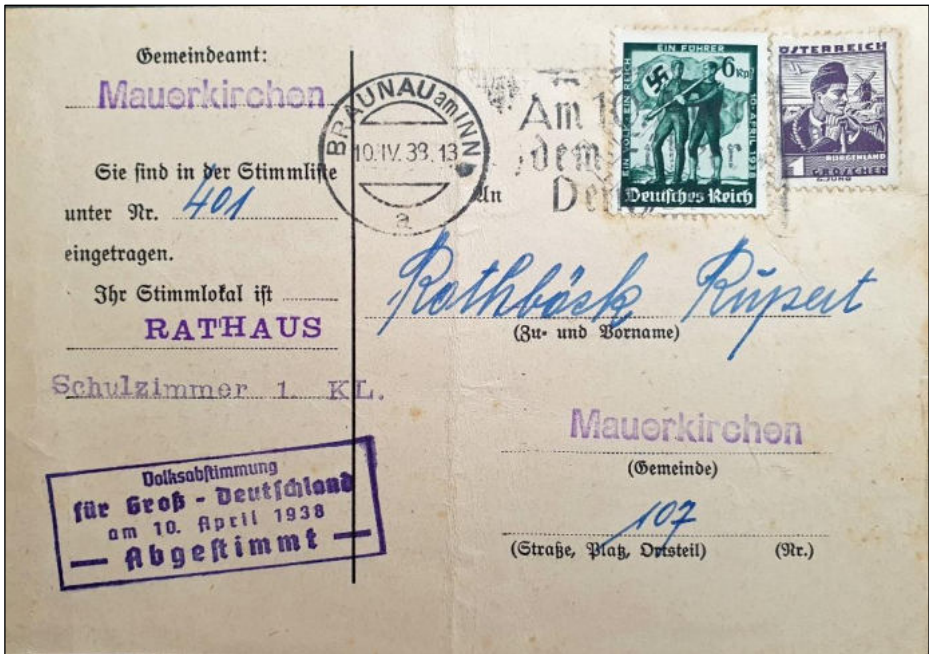 Gemeindeamt:
Mauerkirchen
Sie sind in der Stimmliste
unter Nr. 401
eingetragen.
Ihr Stimmlokal ist
RATHAUS
Schulzimmer 1. KL.
Volksabstimmung
für Groß - Deutschland
am 10. April 1938
— Abgestimmt —
BRAUNAU am INN
10.IV.38.13
a
Am 10
dem
EIN VOLK EIN REICH
EIN FÜHRER
10. APRIL 1938
6 Rpf
Deutsches Reich
ÖSTERREICH
BURGENLAND
1 GROSCHEN
An
Rothböck Rupert
(Zu- und Vorname)
Mauerkirchen
(Gemeinde)
107
(Straße, Platz, Ortsteil) (Nr.)